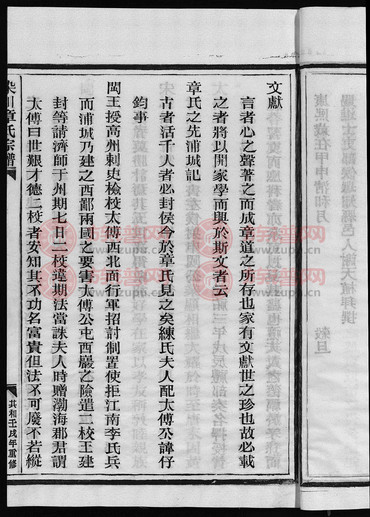 文獻
言者心之聲著之而成章道之所存也家有文獻世之珍也故必載
之者將以開家學而興於斯文者云
章氏之先浦城記
古者活千人者必封侯今於章氏見之矣練氏夫人配太傅公諱仔
鈞事
閩王授高州刺史檢校太傅西北面行軍招討制置使拒江南李氏兵
而浦城乃建之西鄙兩國之要害太傅公屯西巖之險遣二校王建
封等請濟師于州期七日二校違期法當誅夫人時贈渤海郡君謂
太傅曰世艱才德二校者安知其不功名富貴但法不可廢不若縱
氏宗譜
壬戌年重修